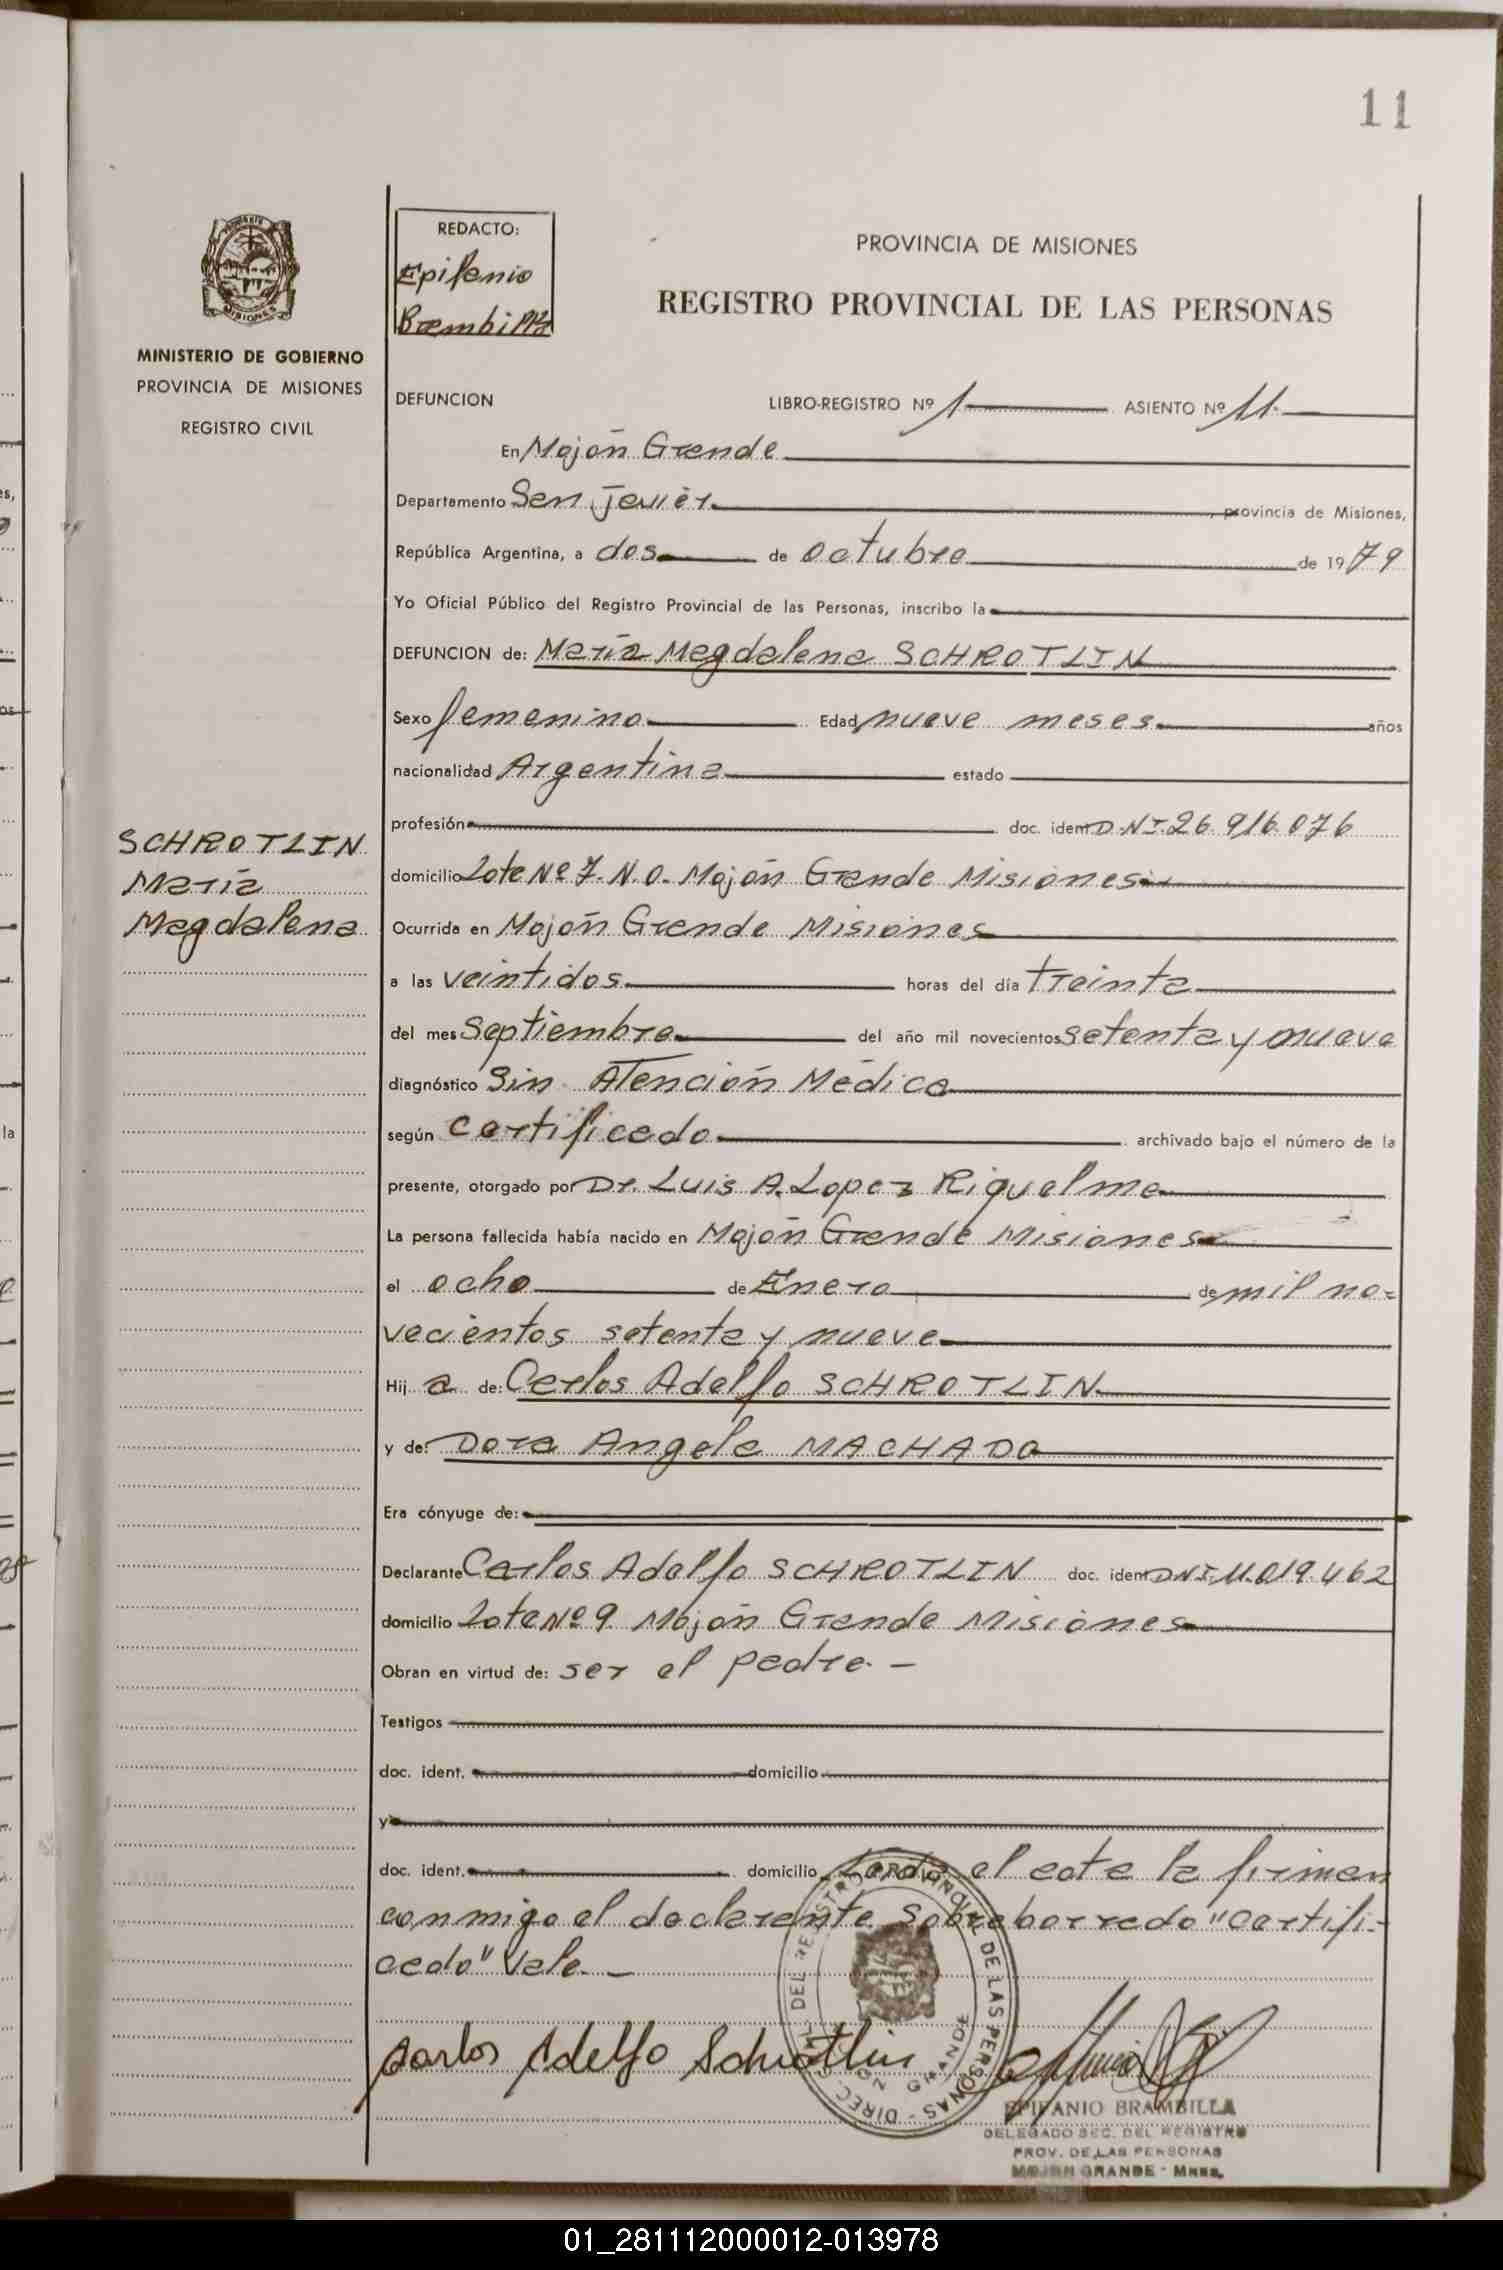 11
REDACTO:
Epifanio
Brambilla
PROVINCIA DE MISIONES
REGISTRO PROVINCIAL DE LAS PERSONAS
MINISTERIO DE GOBIERNO
PROVINCIA DE MISIONES
REGISTRO CIVIL
DEFUNCION LIBRO-REGISTRO Nº 1 ASIENTO Nº 11.
En Mojón Grande
Departamento San Javier, provincia de Misiones,
República Argentina, a dos de octubre de 1979
Yo Oficial Público del Registro Provincial de las Personas, inscribo la
DEFUNCION de: María Magdalena SCHROTLIN
Sexo femenino Edad nueve meses años
nacionalidad Argentina estado
profesión doc. ident D.N.I. 26.916.076
SCHROTLIN
María
Magdalena
domicilio Lote Nº 7. N.O. Mojón Grande Misiones
Ocurrida en Mojón Grande Misiones
a las veintidos horas del día treinta
del mes Septiembre del año mil novecientos setenta y nueve
diagnóstico Sin Atención Médica
según certificado archivado bajo el número de la
presente, otorgado por Dr. Luis A. Lopez Riquelme
La persona fallecida había nacido en Mojón Grande Misiones
el ocho de Enero de mil no=
vecientos setenta y nueve
Hij a de: Carlos Adolfo SCHROTLIN
y de: Dora Angela MACHADO
Era cónyuge de:
Declarante Carlos Adolfo SCHROTLIN doc. ident D.N.I. 11.019.462
domicilio Lote Nº 9. Mojón Grande Misiones
Obran en virtud de: ser el padre. -
Testigos
doc. ident. domicilio
y
doc. ident. domicilio Leida el acta la firman
conmigo el declarante Sobre borrado "Certifi-
cado" Vale. -
Carlos Adolfo Schrotlin
EPIFANIO BRAMBILLA
DELEGADO SEC. DEL REGISTRO
PROV. DE LAS PERSONAS
MOJON GRANDE - Mnes.
01_281112000012-013978